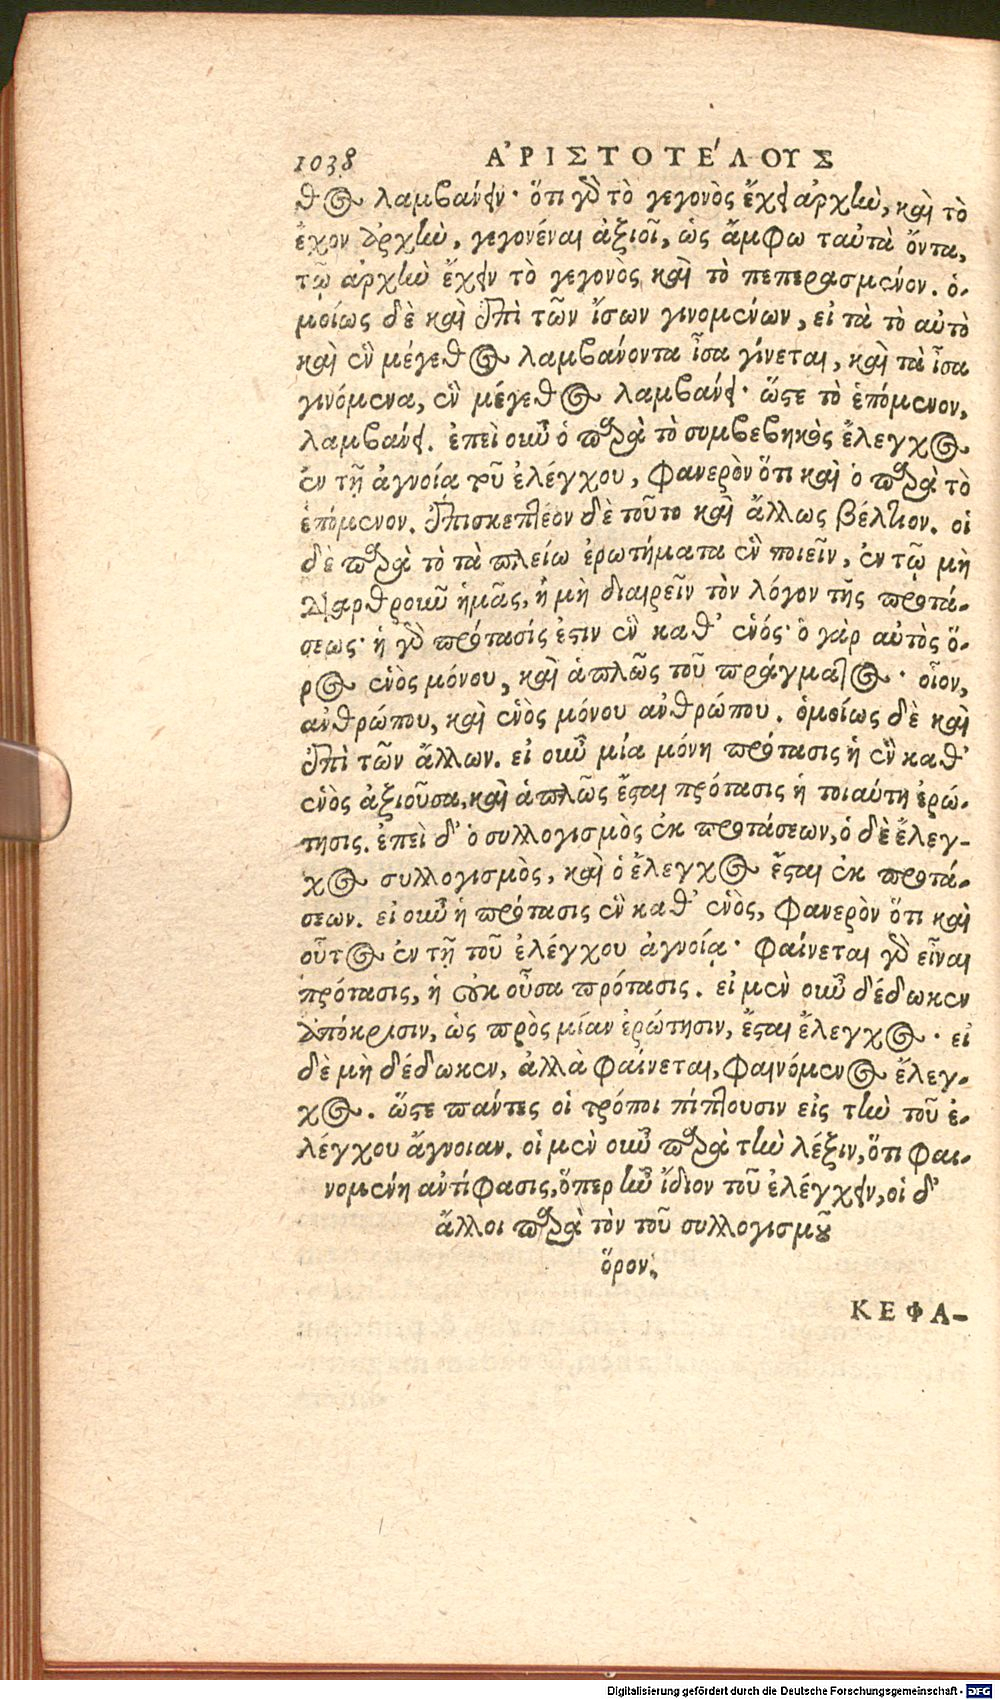 1038 ἈΡΙΣΤΟΤΈΛΟΥΣ
θος λαμβάνειν· ὅτι γὰρ τὸ γεγονὸς ἔχει ἀρχὴν, καὶ τὸ
ἔχον ἀρχὴν, γεγονέναι ἀξιοῖ, ὡς ἄμφω ταὐτὰ ὄντα,
τῷ ἀρχὴν ἔχειν τὸ γεγονὸς καὶ τὸ πεπερασμένον. ὁ-
μοίως δὲ καὶ ἐπὶ τῶν ἴσων γινομένων, εἰ τὰ τὸ αὐτὸ
καὶ ἓν μέγεθος λαμβάνοντα ἶσα γίνεται, καὶ τὰ ἶσα
γινόμενα, ἓν μέγεθος λαμβάνει· ὥστε τὸ ἑπόμενον,
λαμβάνει. ἐπεὶ οὖν ὁ παρὰ τὸ συμβεβηκὸς ἔλεγχος
ἐν τῇ ἀγνοίᾳ τοῦ ἐλέγχου, φανερὸν ὅτι καὶ ὁ παρὰ τὸ
ἑπόμενον. ἐπισκεπτέον δὲ τοῦτο καὶ ἄλλως βέλτιον. οἱ
δὲ παρὰ τὸ τὰ πλείω ἐρωτήματα ἓν ποιεῖν, ἐν τῷ μὴ
διαρθροῦν ἡμᾶς, ἢ μὴ διαιρεῖν τὸν λόγον τῆς προτά-
σεως· ἡ γὰρ πρότασίς ἐστιν ἓν καθ' ἑνός· ὁ γὰρ αὐτὸς ὅ-
ρος ἑνὸς μόνου, καὶ ἁπλῶς τοῦ πράγματος· οἷον,
ἀνθρώπου, καὶ ἑνὸς μόνου ἀνθρώπου. ὁμοίως δὲ καὶ
ἐπὶ τῶν ἄλλων. εἰ οὖν μία μόνη πρότασις ἡ ἓν καθ'
ἑνὸς ἀξιοῦσα, καὶ ἁπλῶς ἔσται πρότασις ἡ τοιαύτη ἐρώ-
τησις. ἐπεὶ δ' ὁ συλλογισμὸς ἐκ προτάσεων, ὁ δὲ ἔλεγ-
χος συλλογισμὸς, καὶ ὁ ἔλεγχος ἔσται ἐκ προτά-
σεων. εἰ οὖν ἡ πρότασις ἓν καθ' ἑνὸς, φανερὸν ὅτι καὶ
οὗτος ἐν τῇ τοῦ ἐλέγχου ἀγνοίᾳ· φαίνεται γὰρ εἶναι
πρότασις, ἡ οὐκ οὖσα πρότασις. εἰ μὲν οὖν δέδωκεν
ἀπόκρισιν, ὡς πρὸς μίαν ἐρώτησιν, ἔσται ἔλεγχος· εἰ
δὲ μὴ δέδωκεν, ἀλλὰ φαίνεται, φαινόμενος ἔλεγ-
χος. ὥστε πάντες οἱ τρόποι πίπτουσιν εἰς τὴν τοῦ ἐ-
λέγχου ἄγνοιαν. οἱ μὲν οὖν παρὰ τὴν λέξιν, ὅτι φαι-
νομένη ἀντίφασις, ὅπερ ἦν ἴδιον τοῦ ἐλέγχειν, οἱ δ'
ἄλλοι παρὰ τὸν τοῦ συλλογισμοῦ
ὅρον.
ΚΕΦΑ-
Digitalisierung gefördert durch die Deutsche Forschungsgemeinschaft - DFG